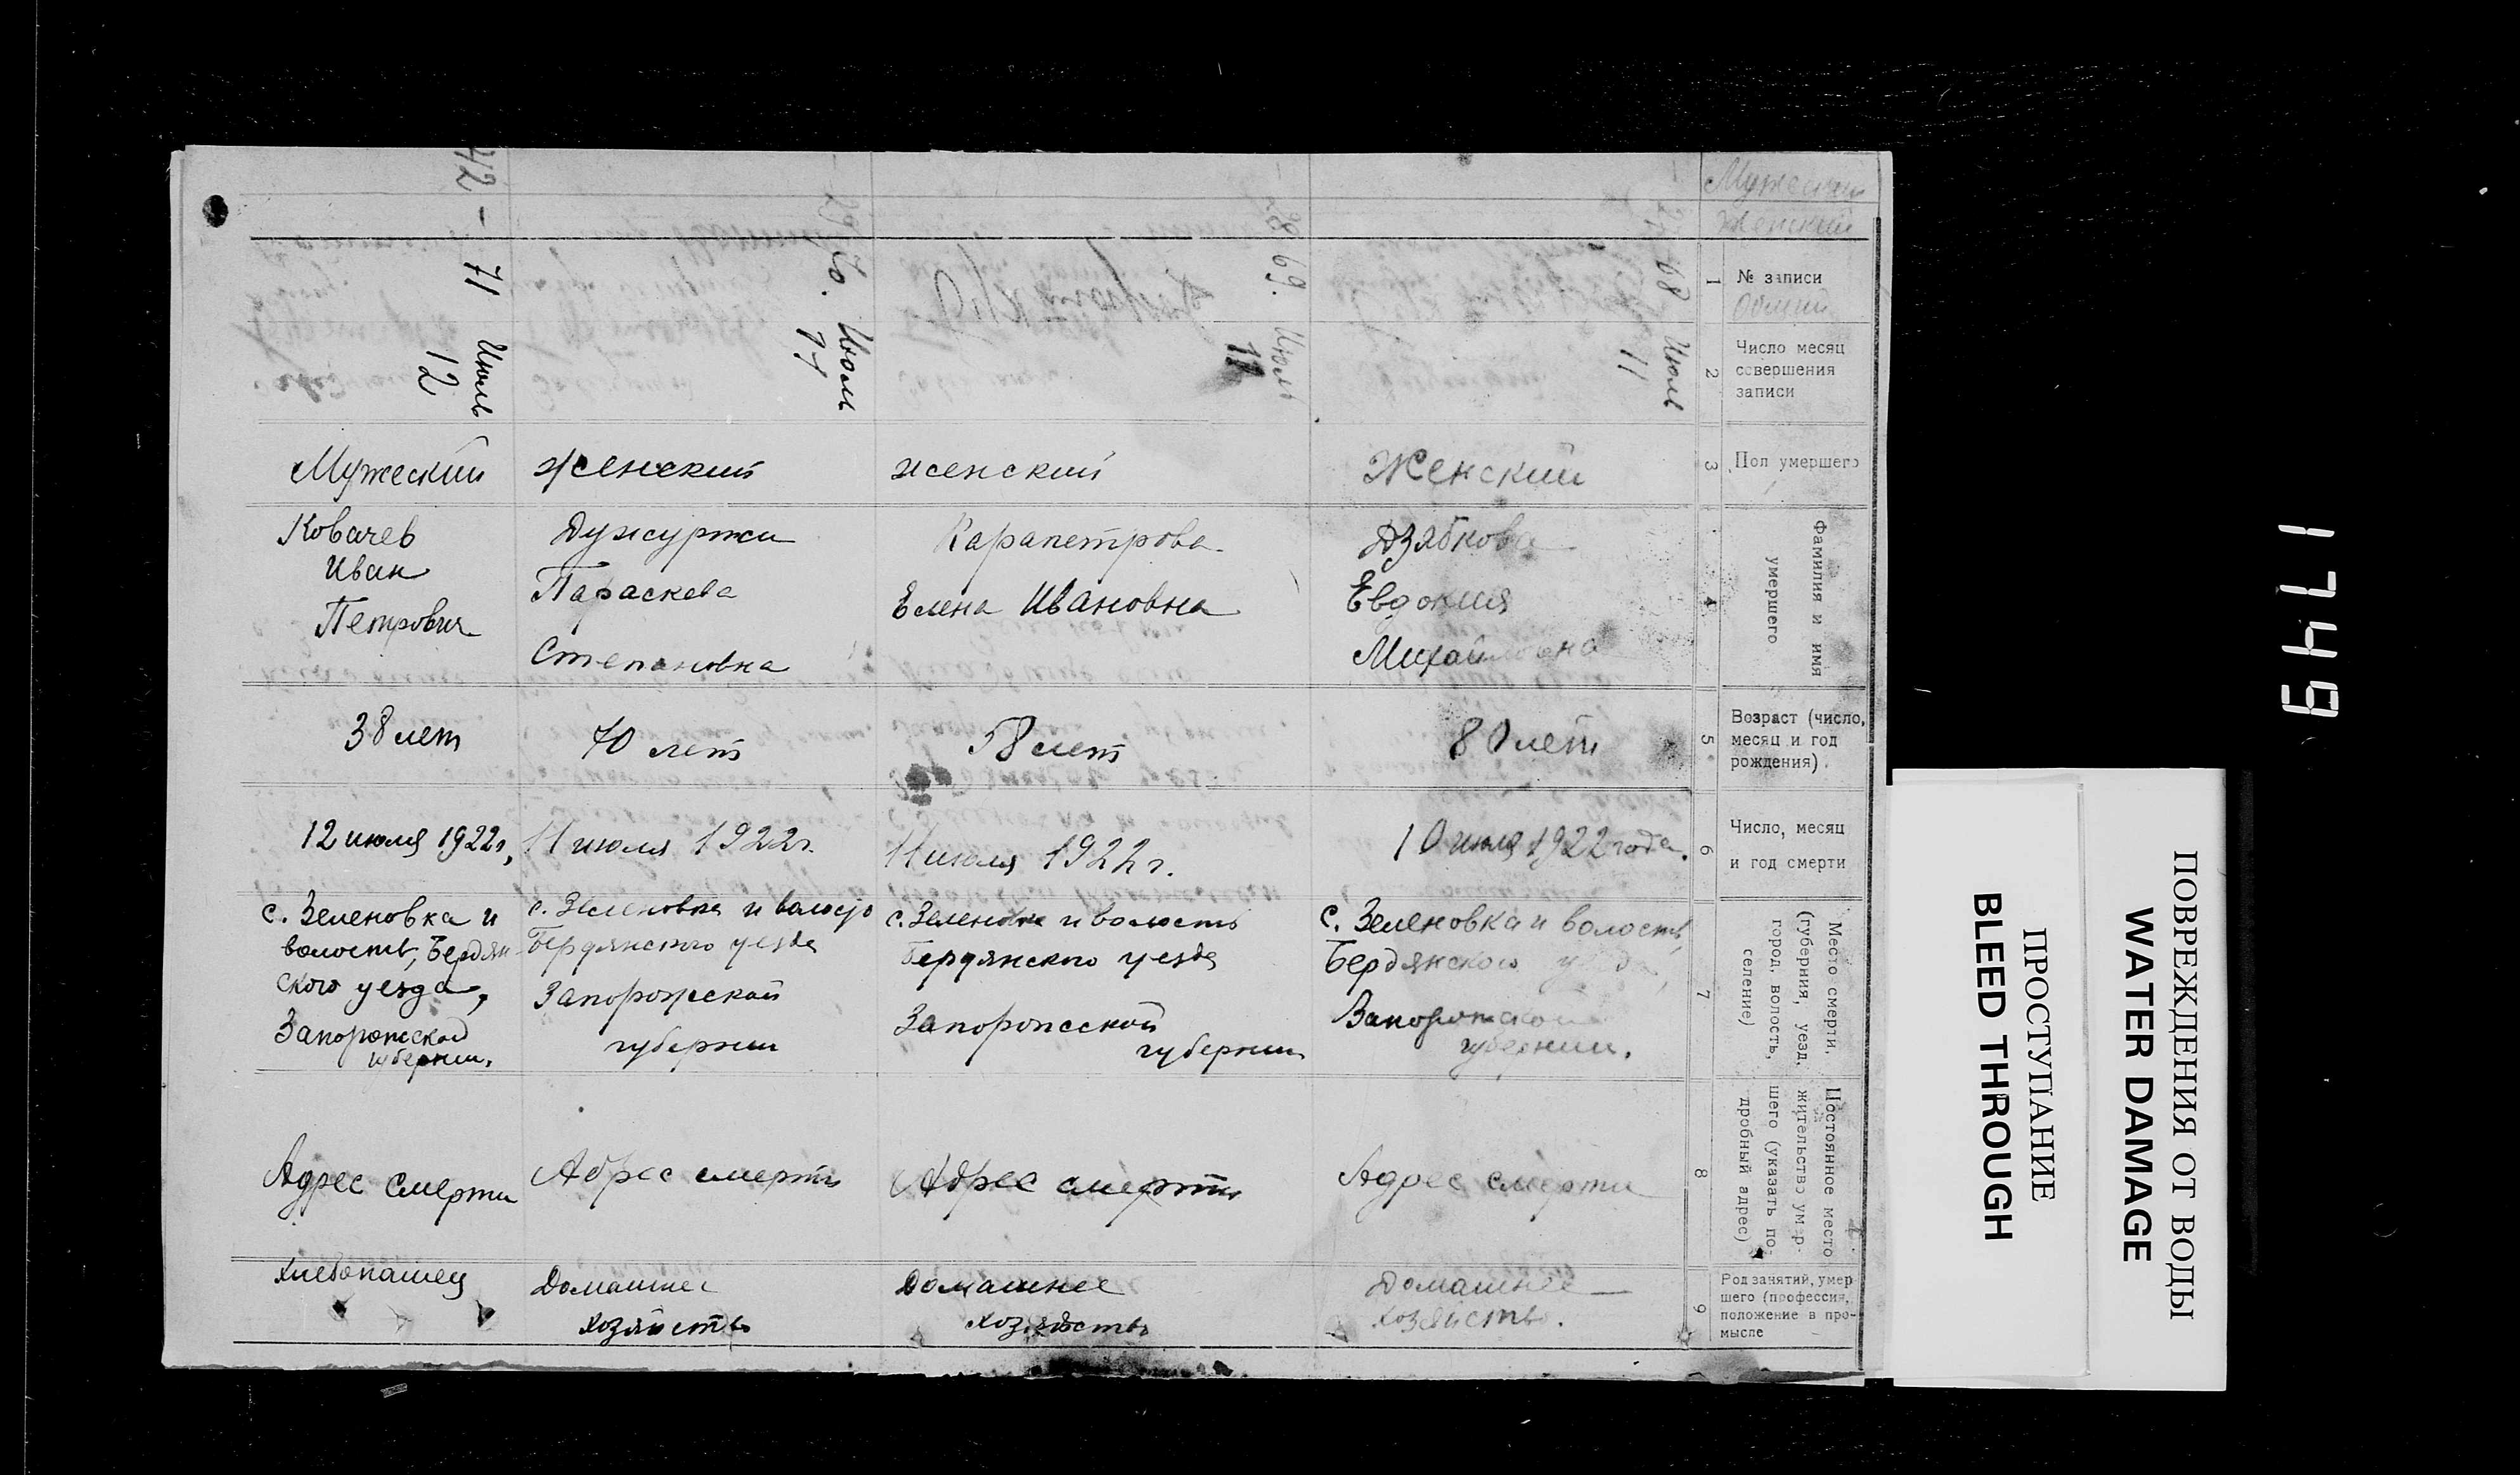 Мужеский
Женский
1 № записи
Общий
68
69.
70.
42 - 71
2 Число месяц
совершения
записи
Июль
11
Июль
11
Июль
11
Июль
12
3 Пол умершего
Женский
женский
Женский
Мужеский
4 Фамилия и имя
умершего
Дзябкова
Евдокия
Михайловна
Карапетрова
Елена Ивановна
Дужуржи
Параскева
Степановна
Ковачев
Иван
Петрович
5 Возраст (число,
месяц и год
рождения)
80 лет
58 лет
70 лет
38 лет
6 Число, месяц
и год смерти
10 июля 1922 года.
11 июля 1922 г.
11 июля 1922 г.
12 июля 1922 г,
7 Место смерти,
(губерния, уезд,
город, волость,
селение)
с. Зеленовка и волость,
Бердянского уезда,
Запорожской
губернии.
с. Зеленовка и волость
Бердянского уезда
Запорожской
губернии
с. Зеленовка и волость
Бердянского уезда
Запорожской
губернии
с. Зеленовка и
волость, Бердян-
ского уезда,
Запорожской
губернии.
8 Постоянное место
жительство умер-
шего (указать по-
дробный адрес)
Адрес смерти
Адрес смерти
Адрес смерти
Адрес смерти
9 Род занятий, умер
шего (профессия,
положение в про-
мысле
Домашнее
хозяйство.
Домашнее
хозяйство
Домашнее
хозяйство
Хлебопашец
ПОВРЕЖДЕНИЯ ОТ ВОДЫ
WATER DAMAGE
ПРОСТУПАНИЕ
BLEED THROUGH
1749